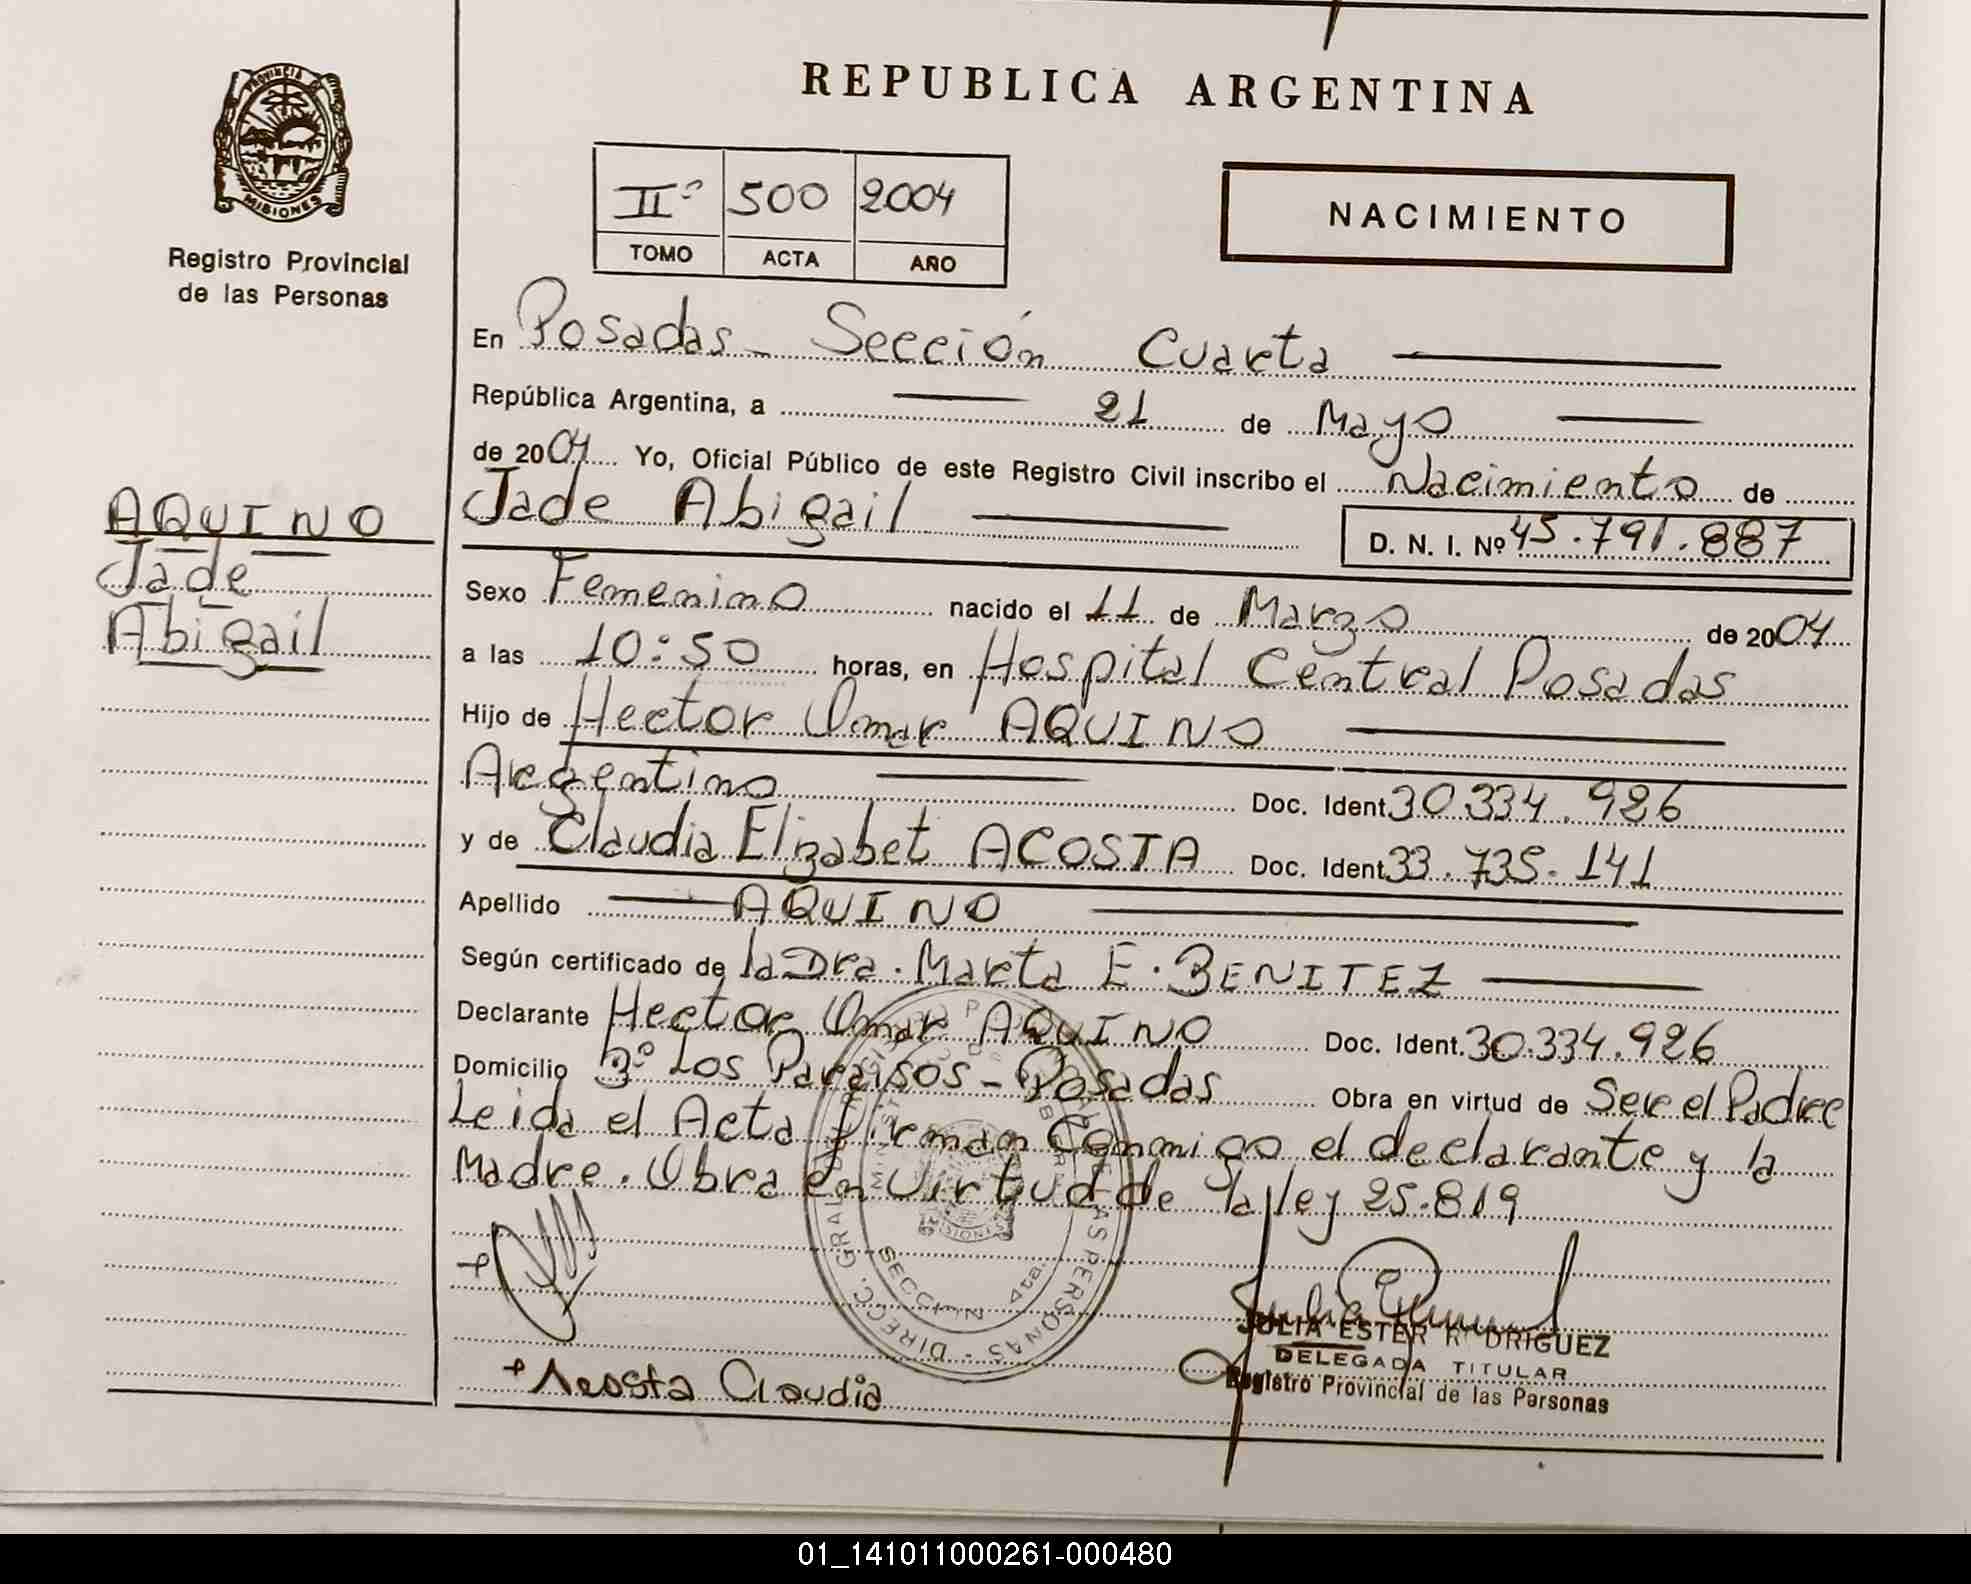 REPUBLICA ARGENTINA
PROVINCIA
MISIONES
Registro Provincial
de las Personas
IIº 500 2004
TOMO ACTA AÑO
NACIMIENTO
En Posadas - Sección Cuarta
República Argentina, a 21 de Mayo
de 2004 Yo, Oficial Público de este Registro Civil inscribo el Nacimiento de
AQUINO
Jade
Abigail
Jade Abigail D. N. I. Nº 45.791.887
Sexo Femenino nacido el 11 de Marzo de 2004
a las 10:50 horas, en Hospital Central Posadas
Hijo de Hector Omar AQUINO
Argentino Doc. Ident. 30.334.926
y de Claudia Elizabet ACOSTA Doc. Ident. 33.735.141
Apellido AQUINO
Según certificado de la Dra. Marta E. BENITEZ
Declarante Hector Omar AQUINO Doc. Ident. 30.334.926
Domicilio Bº Los Paraisos - Posadas Obra en virtud de Ser el Padre
Leida el Acta firman Conmigo el declarante y la
Madre. Obra en Virtud de la ley 25.819
SECCION 4ta.
Acosta Claudia
JULIA ESTER RODRIGUEZ
DELEGADA TITULAR
Registro Provincial de las Personas
01_141011000261-000480